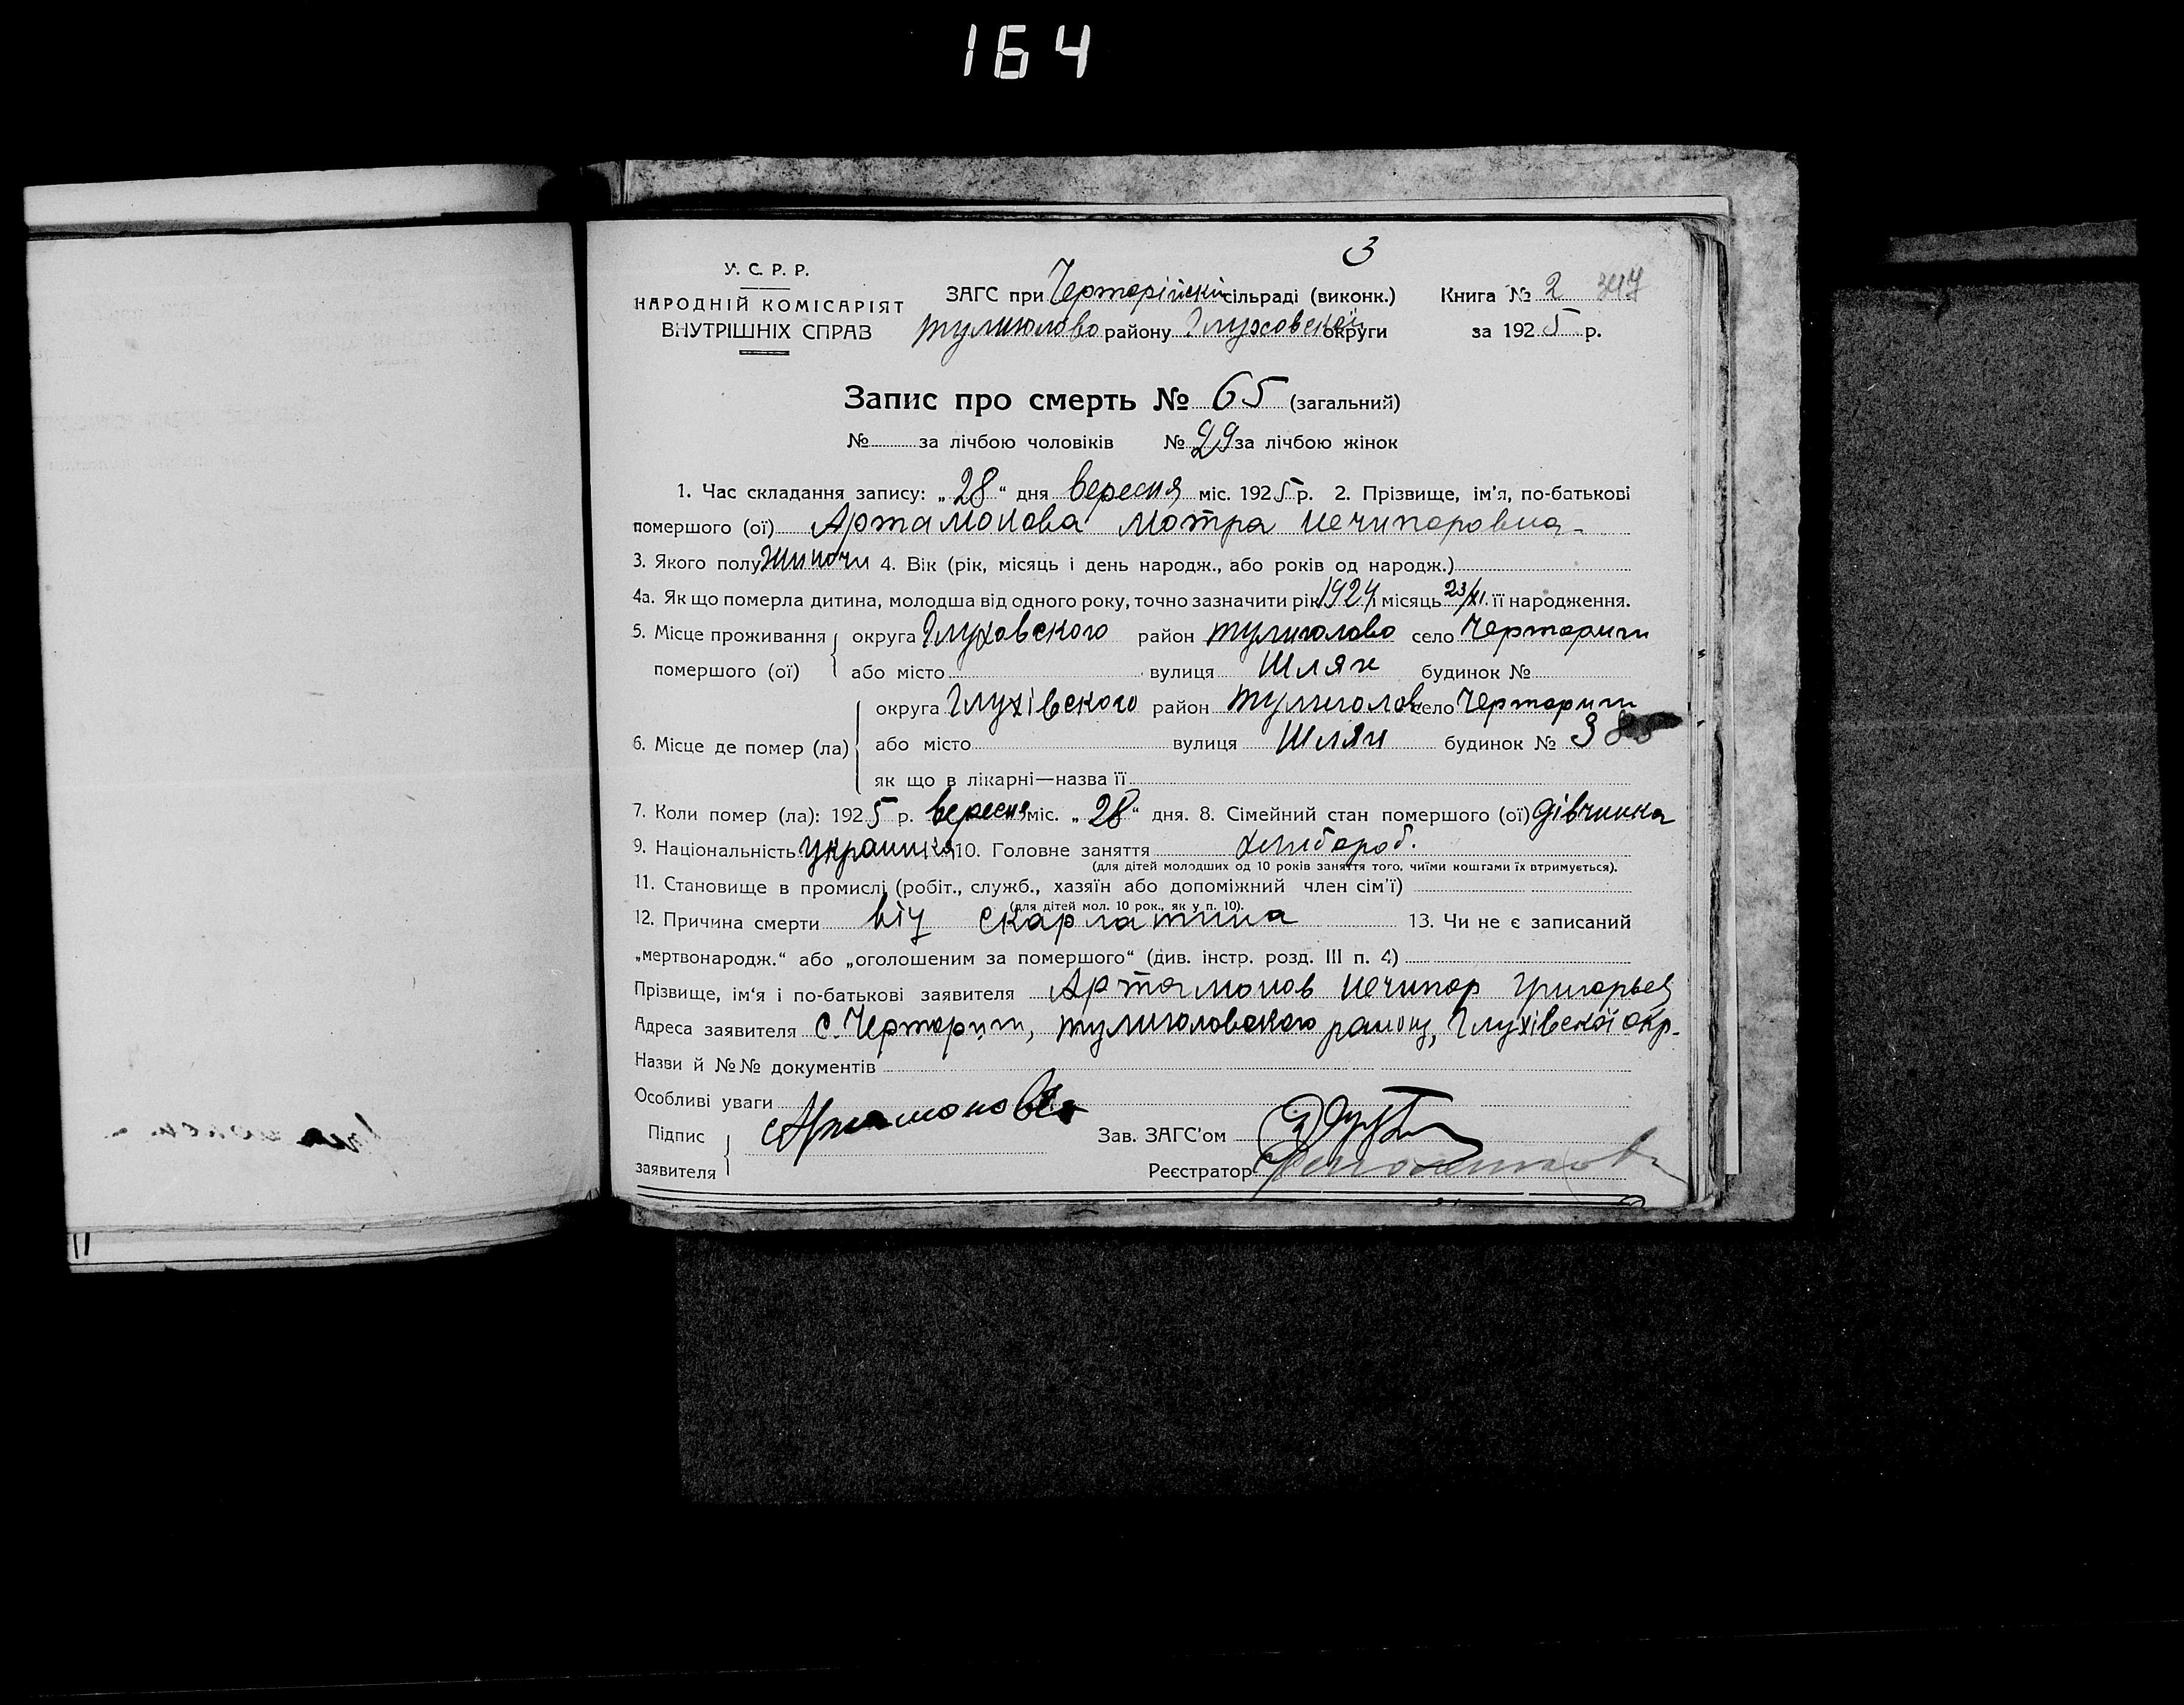 164
3
У. С. Р. Р.
НАРОДНІЙ КОМІСАРІЯТ
ВНУТРІШНІХ СПРАВ
ЗАГС при Чертарійскій сільраді (виконк.) Книга № 2 347
тулиголово району Глуховської округи за 1925 р.
Запис про смерть № 65 (загальний)
№ за лічбою чоловіків № 29 за лічбою жінок
1. Час складання запису: „28“ дня вересня міс. 1925 р. 2. Прізвище, ім'я, по-батькові
помершого (ої) Артамонова Мотра нечипоровна
3. Якого полу жиночи 4. Вік (рік, місяць і день народж., або років од народж.)
4а. Як що померла дитина, молодша від одного року, точно зазначити рік 1924 місяць 23/XI. її народження.
5. Місце проживання округа Глуховского район тулиголово село Черториги
помершого (ої) або місто вулиця Шлях будинок №
округа Глухівского район тулиголов село Черториги
6. Місце де помер (ла) або місто вулиця Шлях будинок №
як що в лікарні—назва її
7. Коли помер (ла): 1925 р. вересня міс. „28“ дня. 8. Сімейний стан помершого (ої) дівчинка
9. Національність украинка 10. Головне заняття хлибороб.
(для дітей молодших од 10 років заняття того, чиїми коштами їх втримується).
11. Становище в промислі (робіт., служб., хазяїн або допоміжний член сім'ї)
(для дітей мол. 10 рок., як у п. 10).
12. Причина смерти від скарлатина 13. Чи не є записаний
„мертвонародж.“ або „оголошеним за помершого“ (див. інстр. розд. III п. 4)
Прізвище, ім'я і по-батькові заявителя Артамонов нечипор григорьев
Адреса заявителя с. Черториги, тулиголовского району, Глухівскої окр.
Назви й №№ документів
Особливі уваги
Підпис
заявителя
Артамонов
Зав. ЗАГС'ом
Реєстратор